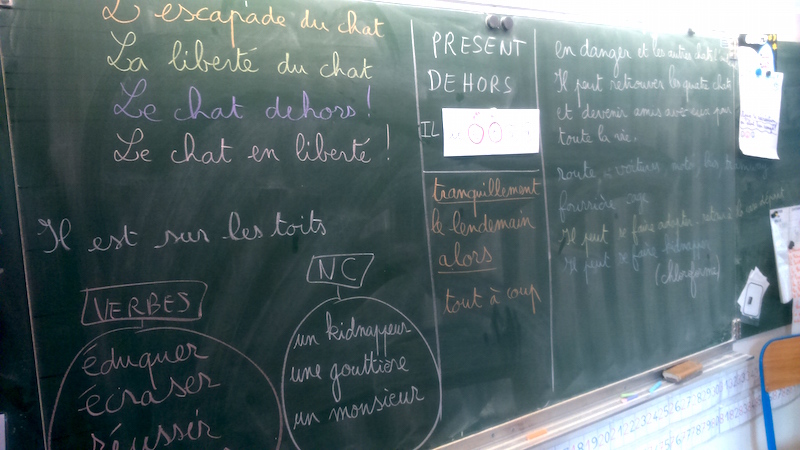 L'escapade du chat
La liberté du chat
Le chat dehors !
Le chat en liberté !
Il est sur les toits
VERBES
éduquer
écraser
réussir
NC
un kidnappeur
une gouttière
un monsieur
PRESENT
DEHORS
IL
tranquillement
le lendemain
alors
tout à coup
en danger et les autres chats !
Il peut retrouver les quatre chats
et devenir amis avec eux pour
toute la vie.
route, voitures, moto, bus
fourrière cage
Il peut se faire adopter
Il peut se faire kidnapper
(chloroforme)